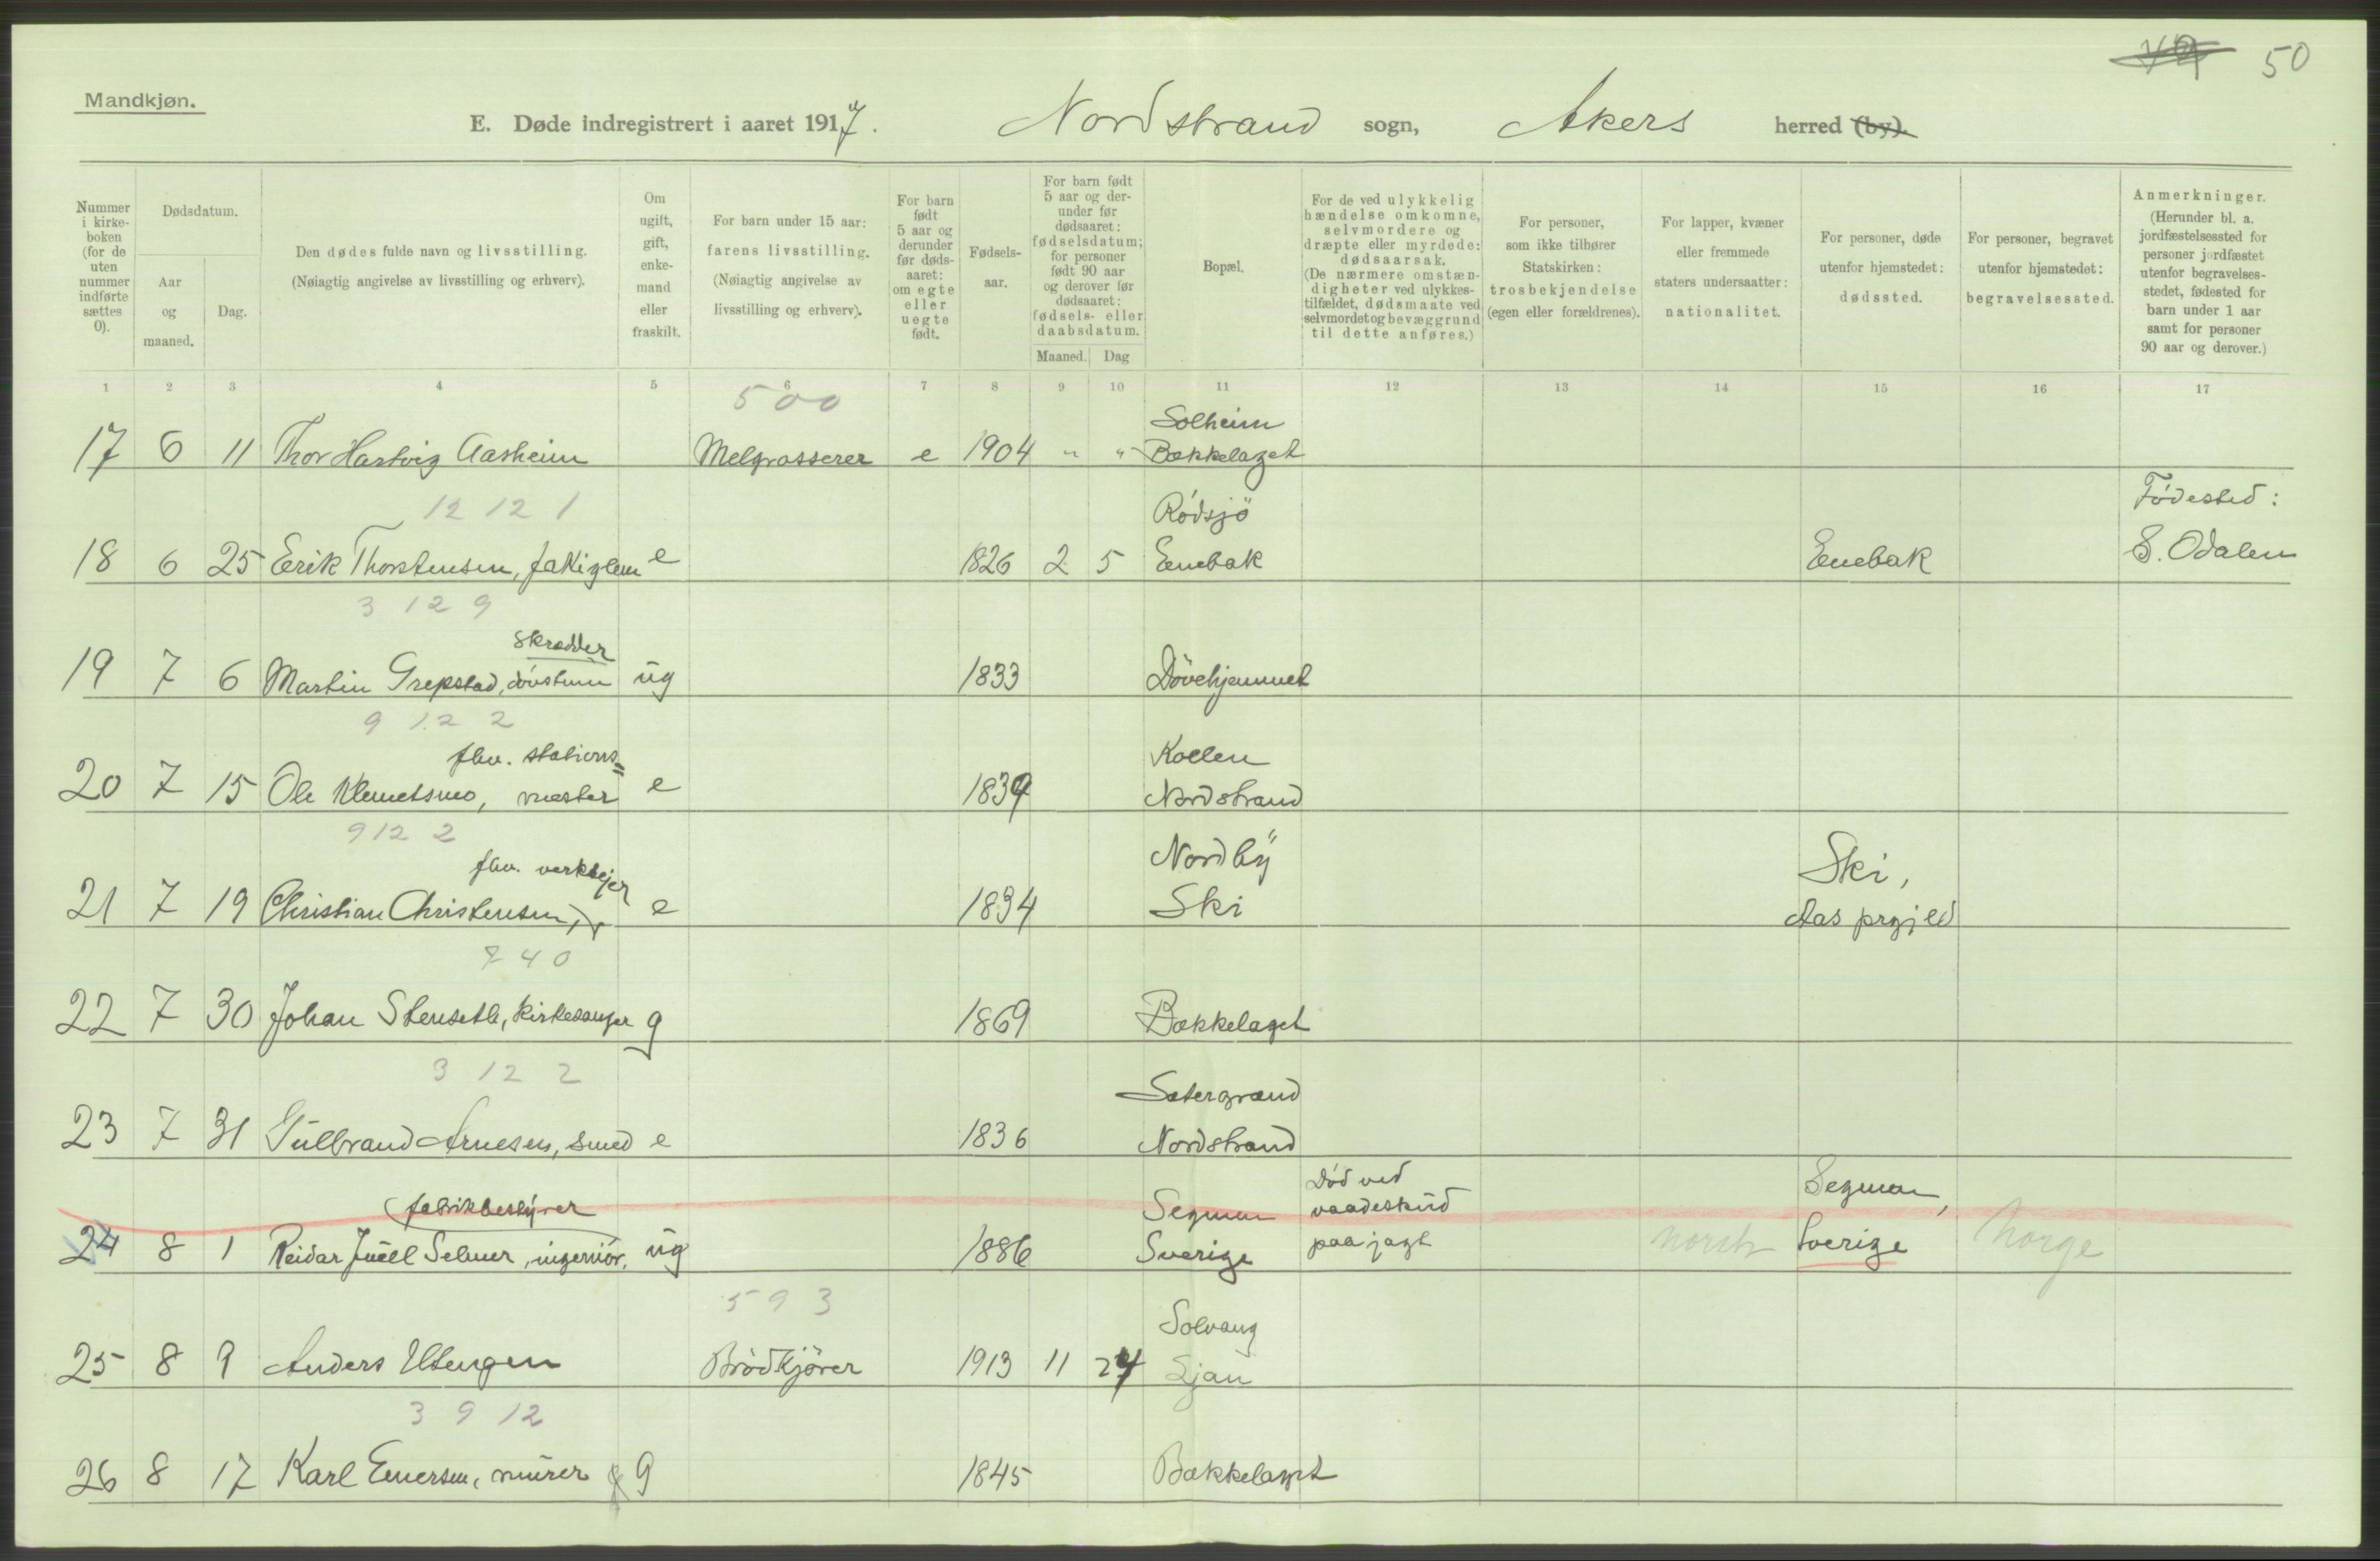 50
Mandkjøn.
E. Døde indregistrert i aaret 1917. Nordstrand sogn, Akers herred (by).
Nummer i kirke-boken (for de uten nummer indførte sættes 0).
Dødsdatum.
Aar og maaned.
Dag.
Den dødes fulde navn og livsstilling.
(Nøiagtig angivelse av livsstilling og erhverv).
Om ugift, gift, enke-mand eller fraskilt.
For barn under 15 aar: farens livsstilling.
(Nøiagtig angivelse av livsstilling og erhverv).
For barn født 5 aar og derunder før døds-aaret: om egte eller uegte født.
Fødsels-aar.
For barn født 5 aar og der-under før dødsaaret: fødselsdatum; for personer født 90 aar og derover før dødsaaret: fødsels- eller daabsdatum.
Maaned. Dag
Bopæl.
For de ved ulykkelig hændelse omkomne, selvmordere og dræpte eller myrdede: dødsaarsak.
(De nærmere omstæn-digheter ved ulykkes-tilfældet, dødsmaate ved selvmordet og bevæggrund til dette anføres.)
For personer, som ikke tilhører Statskirken: trosbekjendelse (egen eller forældrenes).
For lapper, kvæner eller fremmede staters undersaatter: nationalitet.
For personer, døde utenfor hjemstedet: dødssted.
For personer, begravet utenfor hjemstedet: begravelsessted.
Anmerkninger.
(Herunder bl. a. jordfæstelsessted for personer jordfæstet utenfor begravelses-stedet, fødested for barn under 1 aar samt for personer 90 aar og derover.)
1 2 3 4 5 6 7 8 9 10 11 12 13 14 15 16 17
500
Solheim
17 6 11 Thor Hartvig Aasheim Melgrosserer e 1904 " " Bækkelaget
12 12 1 Rödsjö Födested:
18 6 25 Erik Thorstensen, fattiglem e 1826 2 5 Enebak Enebak S. Odalen
3 12 9
skrædder
19 7 6 Martin Grepstad, døvstum ug 1833 Døvehjemmet
9 12 2
fhv. stations= Kollen
20 7 15 Ole Klemetsmo, mester e 1839 Nordstrand
9 12 2
fhv. verkseier Nordby Ski,
21 7 19 Christian Christensen, e 1834 Ski Aas prgjeld
7 4 0
22 7 30 Johan Stenseth, kirkesanger g 1869 Bækkelaget
3 12 2
Sætergrænd
23 7 31 Gulbrand Arnesen, smed e 1836 Nordstrand
fabrikbestyrer Segmon Død ved vaadeskud Segmon,
24 8 1 Reidar Juell Selmer, ingeniør, ug 1886 Sverige paa jagt norsk Sverige Norge
593
Solvang
25 8 9 Anders Utengen Brödkjörer 1913 11 24 Ljan
3 9 12
26 8 17 Karl Enersen, murer g 1845 Bækkelaget